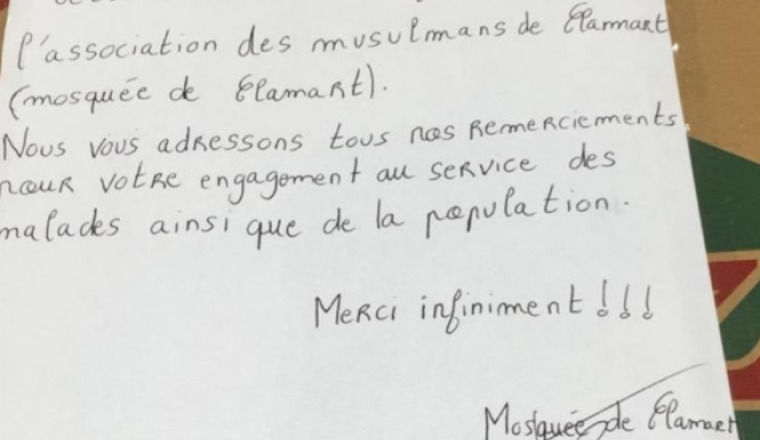 l'association des musulmans de Clamart
(mosquée de Clamart).
Nous vous adressons tous nos remerciements
pour votre engagement au service des
malades ainsi que de la population.
Merci infiniment !!!
Mosquée de Clamart